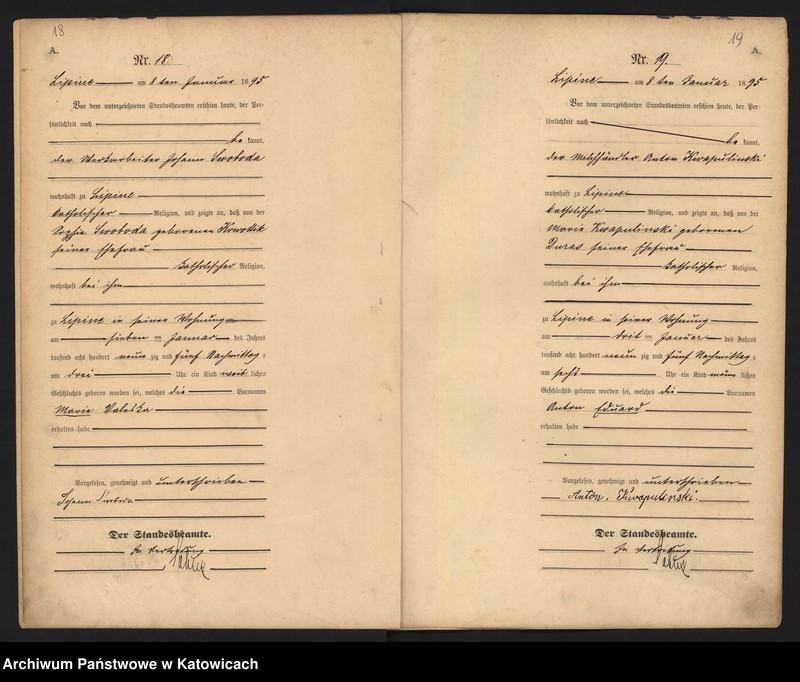 18
A.
Nr. 18.
Lipine am 8 ten Januar 1895
Vor dem unterzeichneten Standesbeamten erschien heute, der Per-
sönlichkeit nach
be kannt,
der Werkarbeiter Johann Swoboda
wohnhaft zu Lipine
katholischer Religion, und zeigte an, daß von der
Sophie Swoboda geborenen
seiner Ehefrau
katholischer Religion,
wohnhaft bei ihm
zu Lipine in seiner Wohnung
am sieben ten Januar des Jahres
tausend acht hundert neun zig und fünf Nachmittag s
um drei Uhr ein Kind weib lichen
Geschlechts geboren worden sei, welches die Vornamen
Marie Valeska
erhalten habe
Vorgelesen, genehmigt und unterschrieben
Johann Swoboda
Der Standesbeamte.
In Vertretung
19
A.
Nr. 19.
Lipine am 8 ten Januar 1895
Vor dem unterzeichneten Standesbeamten erschien heute, der Per-
sönlichkeit nach
be kannt,
der Milchhändler Anton Kwapulinski
wohnhaft zu Lipine
katholischer Religion, und zeigte an, daß von der
Marie Kwapulinski geborenen
Duras seiner Ehefrau
katholischer Religion,
wohnhaft bei ihm
zu Lipine in seiner Wohnung
am drit ten Januar des Jahres
tausend acht hundert neun zig und fünf Nachmittag s
um sechs Uhr ein Kind männ lichen
Geschlechts geboren worden sei, welches die Vornamen
Anton Eduard
erhalten habe
Vorgelesen, genehmigt und unterschrieben
Anton Kwapulinski.
Der Standesbeamte.
In Vertretung
Archiwum Państwowe w Katowicach